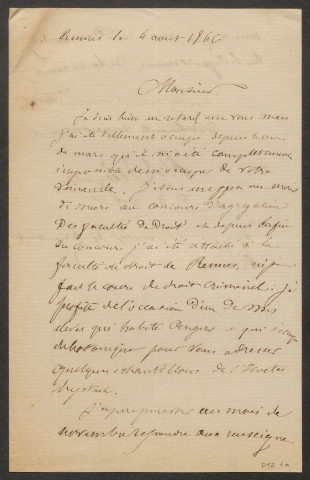 Rennes le 4 aout 1866
Monsieur
Je suis bien en retard avec vous mais
j'ai été tellement occupé depuis le mois
de mars qu'il m'a été complètement
impossible de m'occuper de votre
demande. J'avais un au mois
de mars au concours d'agrégation
des facultés de Droit et depuis la fin
du concours j'ai été attaché à la
faculté de droit de Rennes, où j'ai
fait le cours de droit criminel. Je
profite de l'occasion d'un de mes
élèves qui habite Angers et qui s'occupe
de botanique pour vous adresser
quelques échantillons de
J'espère pouvoir au mois de
novembre répondre aux renseigne-